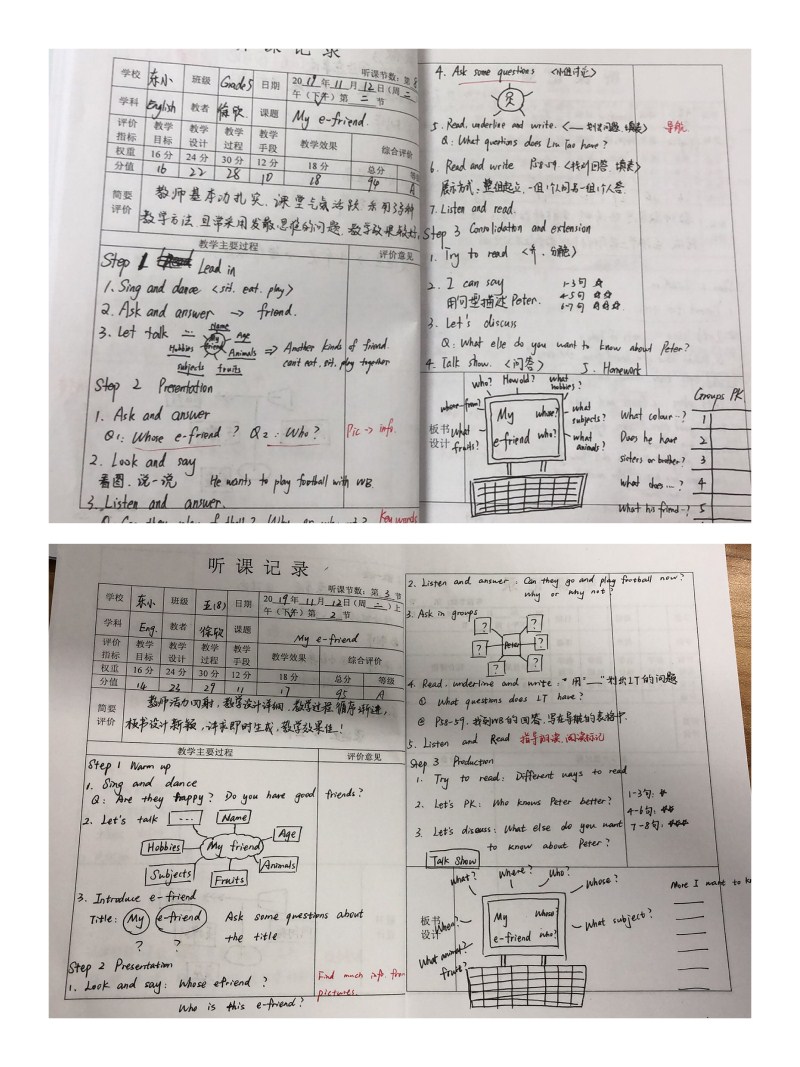 听课记录
听课节数：第8
学校 东小 班级 Grade5 日期 2019年11月12日（周二）
午（下午）第二节
学科 English 教者 徐欣 课题 My e-friend.
评价指标 教学目标 教学设计 教学过程 教学手段 教学效果 综合评价
权重 16分 24分 30分 12分 18分 总分 等
分值 16 22 28 10 18 94 A
简要评价 教师基本功扎实，课堂气氛活跃，采用多种
教学方法，且常采用发散思维的问题，教学效果较好。
教学主要过程 评价意见
Step 1 Lead in
1. Sing and dance <sit. eat. play>
2. Ask and answer → friend.
3. Let talk
Name
Age
Animals
fruits
subjects
Hobbies
My friend
⇒ Another kinds of friend.
can't eat, sit, play together
Step 2 Presentation
1. Ask and answer
Q1: Whose e-friend ? Q2: Who?
Pic → info.
2. Look and say
看图，说一说 He wants to play football with WB
3. Listen and answer.
Key words
4. Ask some questions <小组讨论>
5. Read, underline and write.
Q: What questions does Liu Tao have?
导航
6. Read and write P58-59
展示方式：整组起立，一组1个人问另一组1个人答
7. Listen and read.
Step 3 Consolidation and extension
1. Try to read
2. I can say
用句型描述 Peter.
1-3句 ☆
4-5句 ☆☆
6-7句 ☆☆☆
3. Let's discuss
Q: What else do you want to know about Peter?
4. Talk show. <问答> 5. Homework
板书设计
who?
How old?
what hobbies?
whose-from?
what subjects?
what fruits?
what animals?
My e-friend
whose?
who?
Groups PK
What colour~? 1
Does he have 2
sisters or brother? 3
what does...? 4
What his friend~? 5
听课记录
听课节数：第3节
学校 东小 班级 五(8) 日期 2019年11月12日（周二）上
午（下午）第2节
学科 Eng. 教者 徐欣 课题 My e-friend
评价指标 教学目标 教学设计 教学过程 教学手段 教学效果 综合评价
权重 16分 24分 30分 12分 18分 总分 等级
分值 14 23 29 11 17 95 A
简要评价 教师活力四射，教学设计详细，教学过程循序渐进，
板书设计新颖，讲求即时生成，教学效果佳！
教学主要过程 评价意见
Step 1 Warm up
1. Sing and dance
Q: Are they happy? Do you have good friends?
2. Let's talk
...
Name
Age
Animals
Fruits
Subjects
Hobbies
My friend
3. Introduce e-friend
Title: My e-friend Ask some questions about
? ? the title
Step 2 Presentation
1. Look and say: Whose efriend ?
Who is this e-friend?
Find much info from
pictures.
2. Listen and answer: Can they go and play football now?
Why or why not?
3. Ask in groups
Peter
? ? ? ? ? ?
4. Read, underline and write: "用"——"划出LT的问题
① What questions does LT have?
② P58-59，找到WB的回答，写在导航的表格中.
5. Listen and Read 指导朗读，阅读标记
Step 3 Production
1. Try to read: Different ways to read
2. Let's PK: Who knows Peter better?
1-3句：☆
4-6句：☆☆
7-8句：☆☆☆
3. Let's discuss: What else do you want
to know about Peter?
Talk Show
板书设计
What?
Where?
Who?
Whose?
When?
What subject?
What animal?
fruit?
My e-friend
Whose?
who?
More I want to k